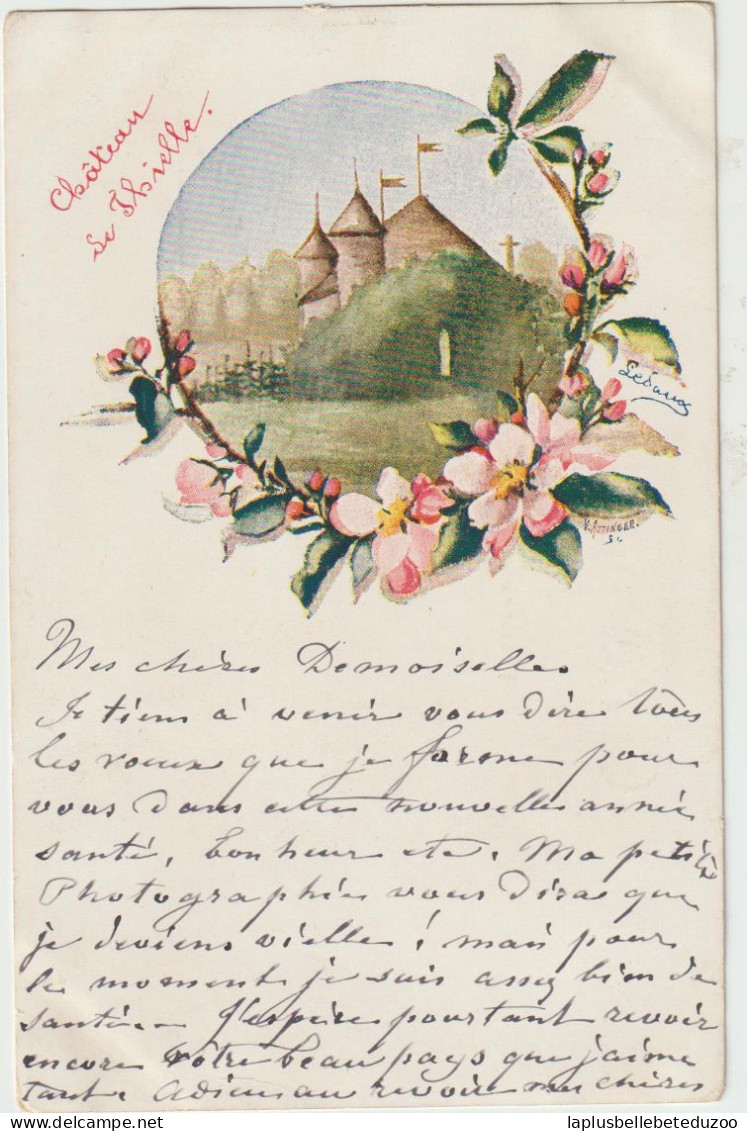 Château
de Thielle.
Ledaux
V. Attinger.
Sc
Mes chères Demoiselles
Je tiens à venir vous dire tous
les voeux que je forme pour
vous dans cette nouvelle année
santé, bonheur etc. Ma petite
Photographie vous dira que
je deviens vielle! mais pour
le moment je suis assez bien de
santé.— J'espère pourtant revoir
encore Vôtre beau pays que j'aime
tant. Adieu au revoir mes chères
laplusbellebeteduzoo